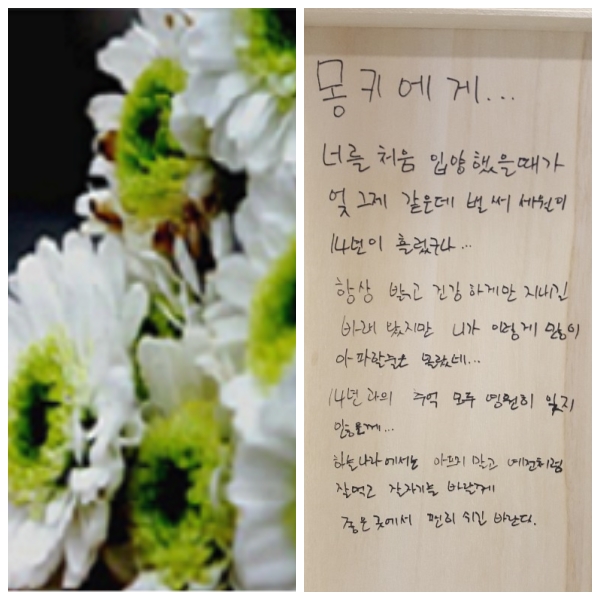 몽키에게...
너를 처음 입양했을때가
엊그제 같은데 벌써 세월이
14년이 흘렀구나...
항상 밝고 건강하게만 지내길
바래 왔지만 니가 이렇게 많이
아파할줄은 몰랐네...
14년과의 추억 모두 영원히 잊지
않을께...
하늘나라에서는 아프지 말고 예전처럼
잘먹고 잘자기를 바랄께
좋은곳에서 편히 쉬길 바란다.